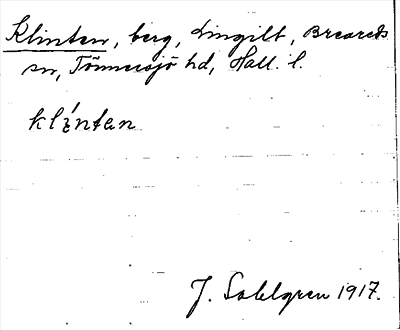 Klinten, berg, Lingilt, Breareds
sn, Tönnersjö hd, Hall. l.
klíntan
J. Sahlgren 1917.